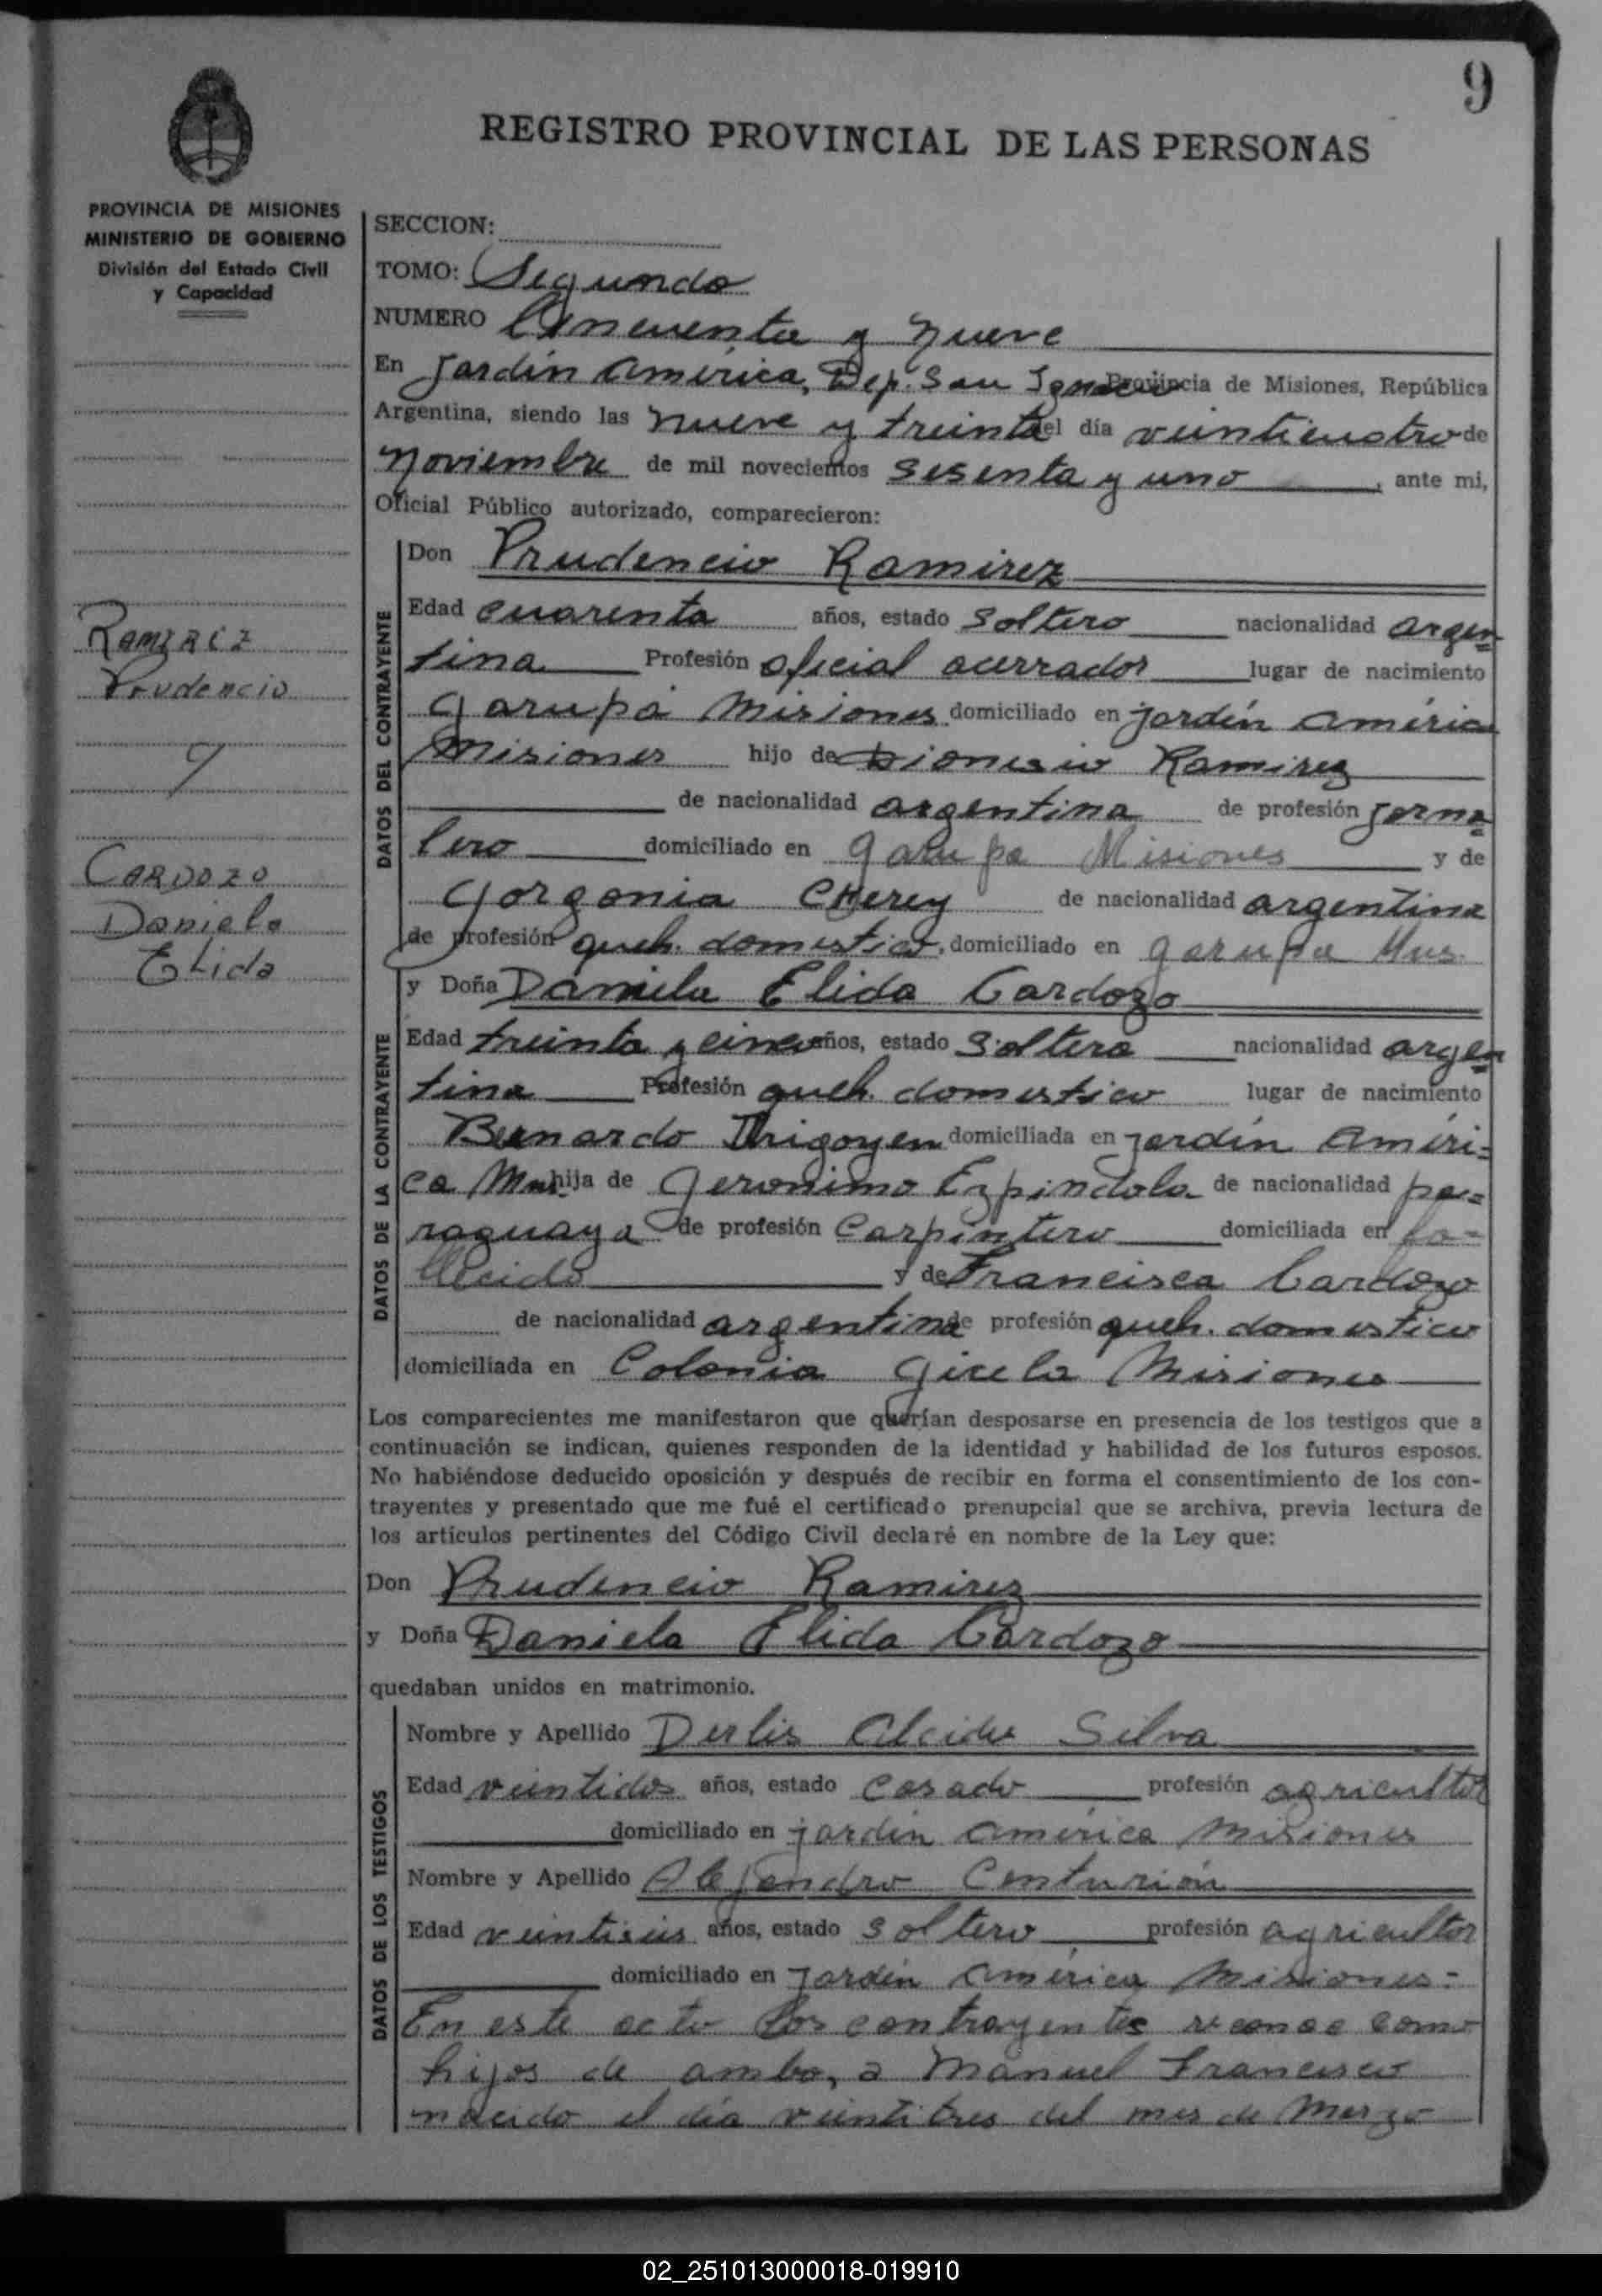 9
REGISTRO PROVINCIAL DE LAS PERSONAS
PROVINCIA DE MISIONES
MINISTERIO DE GOBIERNO
División del Estado Civil
y Capacidad
Ramirez
Prudencio
y
Cardozo
Daniela
Elida
SECCION:
TOMO: Segundo
NUMERO Cincuenta y nueve
En Jardín América, Dep. San Ignacio Provincia de Misiones, República
Argentina, siendo las nueve y treinta del día veinticuatro de
Noviembre de mil novecientos sesenta y uno, ante mi,
Oficial Público autorizado, comparecieron:
DATOS DEL CONTRAYENTE
Don Prudencio Ramirez
Edad cuarenta años, estado soltero nacionalidad argen
tina Profesión oficial acerrador lugar de nacimiento
Garupá Misiones domiciliado en jardín América
Misiones hijo de Dionisio Ramirez
de nacionalidad argentina de profesión jorna
lero domiciliado en Garupa Misiones y de
Gorgonia de nacionalidad argentina
de profesión queh. domestico, domiciliado en garupa Mns.
DATOS DE LA CONTRAYENTE
y Doña Daniela Elida Cardozo
Edad treinta y cinco años, estado soltera nacionalidad argen
tina Profesión queh. domestico lugar de nacimiento
Bernardo Irigoyen domiciliada en jardín Améri=
ca Mns. hija de Geronimo Ezpindola de nacionalidad pa=
raguaya de profesión Carpintero domiciliada en fa=
llecido y de Francisca Cardozo
de nacionalidad argentina de profesión queh. domestico
domiciliada en Colonia Gisela Misiones
Los comparecientes me manifestaron que querían desposarse en presencia de los testigos que a
continuación se indican, quienes responden de la identidad y habilidad de los futuros esposos.
No habiéndose deducido oposición y después de recibir en forma el consentimiento de los con-
trayentes y presentado que me fué el certificado prenupcial que se archiva, previa lectura de
los artículos pertinentes del Código Civil declaré en nombre de la Ley que:
Don Prudencio Ramirez
y Doña Daniela Elida Cardozo
quedaban unidos en matrimonio.
DATOS DE LOS TESTIGOS
Nombre y Apellido Derlis Alcides Silva
Edad veintidos años, estado Casado profesión agricultor
domiciliado en jardín América Misiones
Nombre y Apellido Alejandro Centurión
Edad veintiseis años, estado soltero profesión agricultor
domiciliado en Jardín América Misiones.-
En este acto los contrayentes reconoce como
hijos de ambos, a Manuel Francisco
nacido el día veintitres del mes de Marzo
02_251013000018-019910